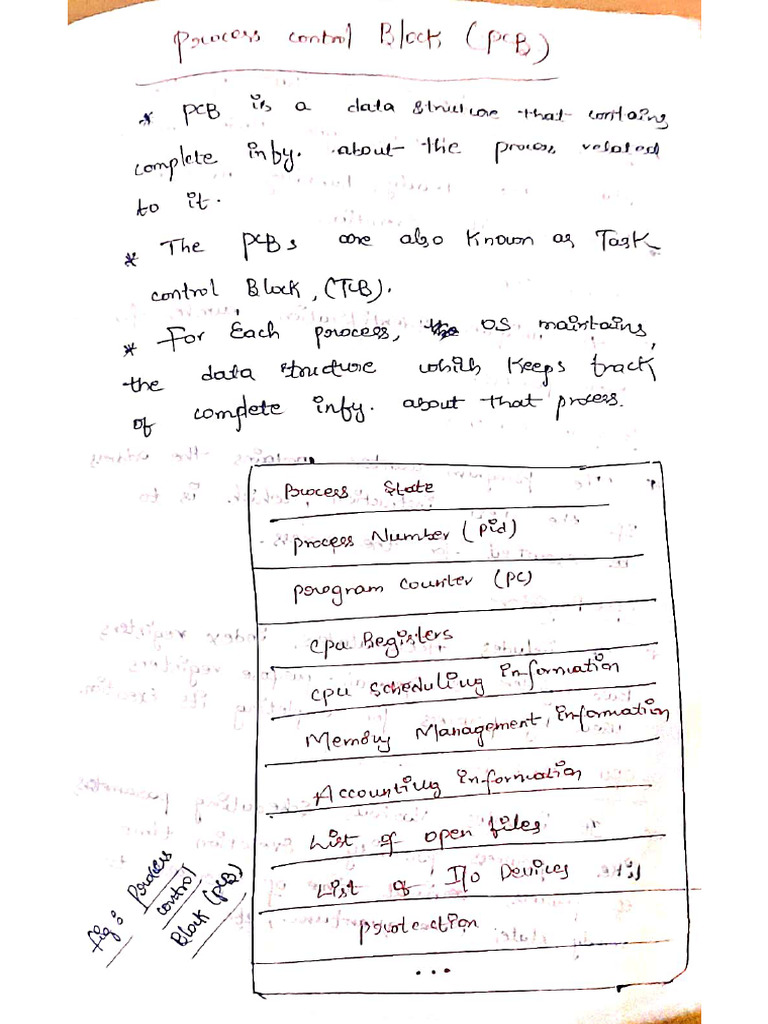 Process control Block (PCB)
* PCB is a data structure that contains
complete infy. about the process related
to it.
* The PCBs are also known as Task
control Block, (TCB).
* For Each process, the OS maintains,
the data structure which keeps track
of complete infy. about that process.
Process State
process Number (pid)
program counter (PC)
CPU Registers
CPU Scheduling Information
Memory Management Information
Accounting Information
List of open files
List of I/O Devices
protection
...
fig: Process
control
Block (PCB)